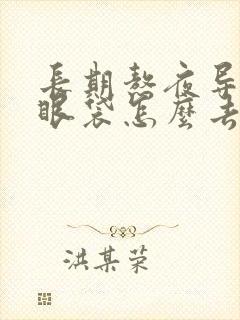 長期熬夜导
眼袋怎麼去
洪某荣